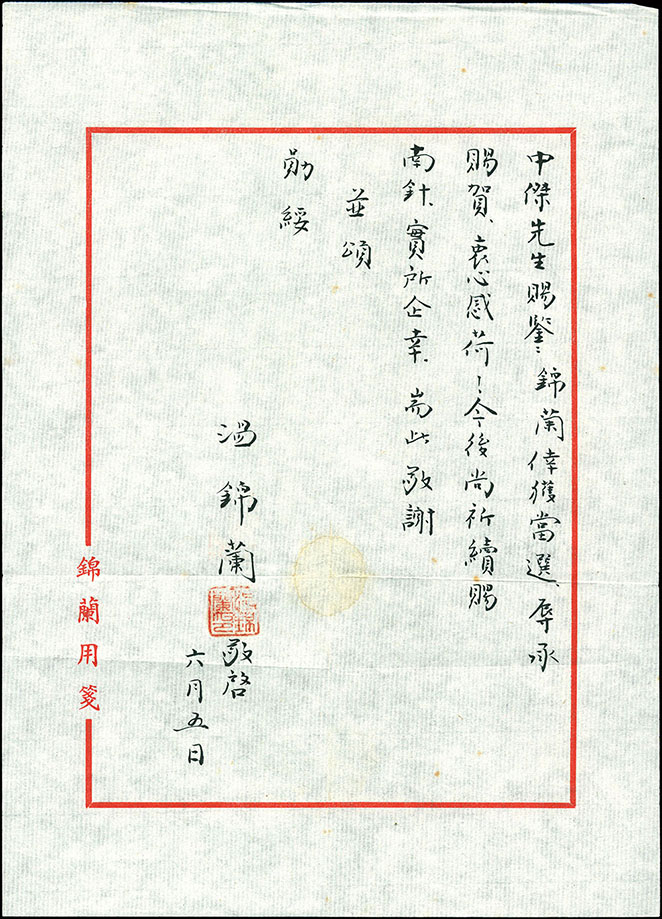 中傑先生賜鑒：錦蘭倖獲當選、辱承
賜賀、衷心感荷！今後尚祈續賜
南針、實所企幸、耑此敬謝
並頌
勛綏
溫錦蘭
敬啓
六月五日
錦蘭用箋